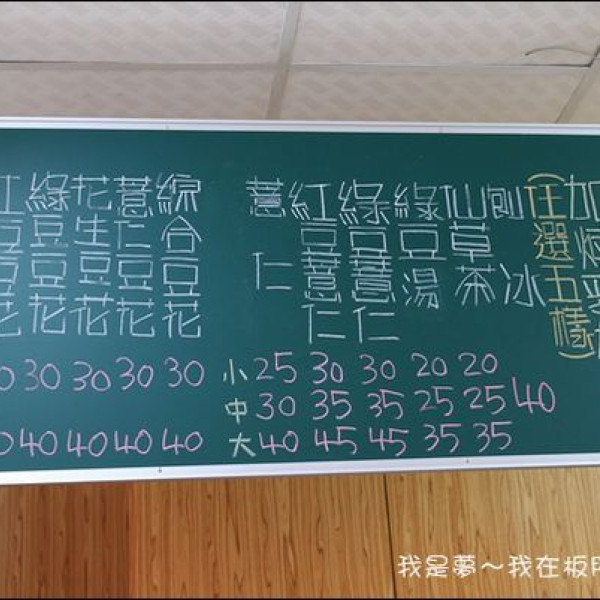 紅豆豆花
綠豆豆花
花生豆花
薏仁豆花
綜合豆花
30 30 30 30
40 40 40 40
薏仁
紅豆薏仁
綠豆薏仁
綠豆湯
仙草茶
刨冰
(任選五樣)
加
小 25 30 30 20 20
中 30 35 35 25 25 40
大 40 45 45 35 35
我是夢～我在板